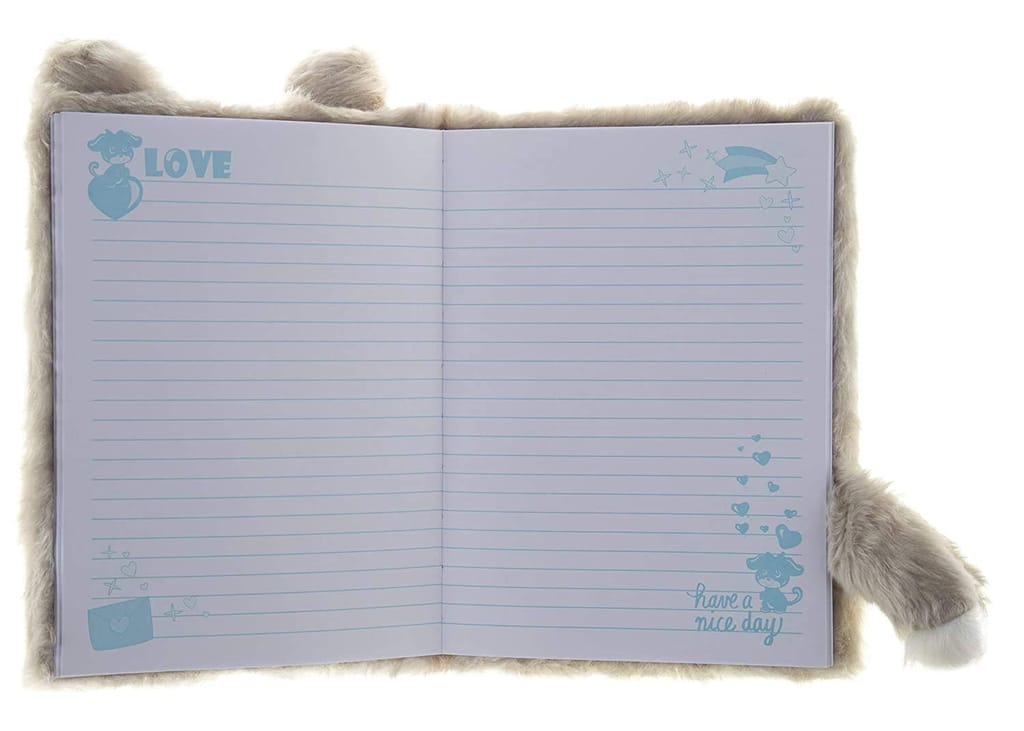 LOVE
have a
nice day